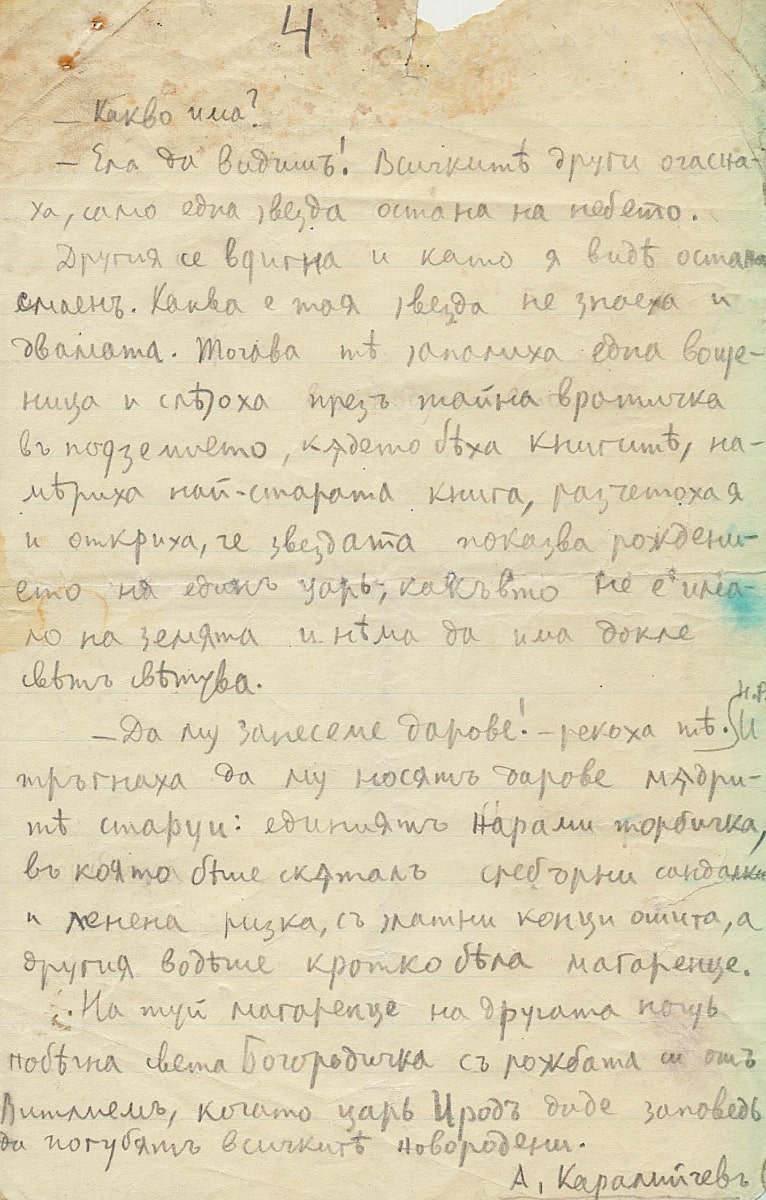 4
— Какво има?
— Ела да видишъ! Всичкитѣ други огасна-
ха, само една звезда остана на небето.
Другия се вдигна и като я видѣ остана
смаенъ. Каква е тая звезда не знаеха и
двамата. Тогава тѣ запалиха една воще-
ница и слѣзоха презъ тайна вратичка
въ подземието, кѫдето бѣха книгитѣ, на-
мѣриха най-старата книга, разчетоха я
и откриха, че звездата показва рождени-
ето на единъ царь, какъвто не е има-
ло на земята и нѣма да има докле
свѣтъ свѣтува.
— Да му занесеме дарове! — рекоха тѣ. И
Н.Р.
тръгнаха да му носятъ дарове мѫдри-
тѣ старци: единиятъ нарами торбичка,
въ която бѣше скѫталъ сребърни сандалки
и ленена ризка, съ златни конци ошита, а
другия водѣше кротко бѣла магаренце.
На туй магаренце на другата нощь
побѣгна света Богородичка съ рожбата си отъ
Витлиемъ, когато царь Иродъ даде заповедь
да погубятъ всичкитѣ новородени.
А. Каралийчевъ